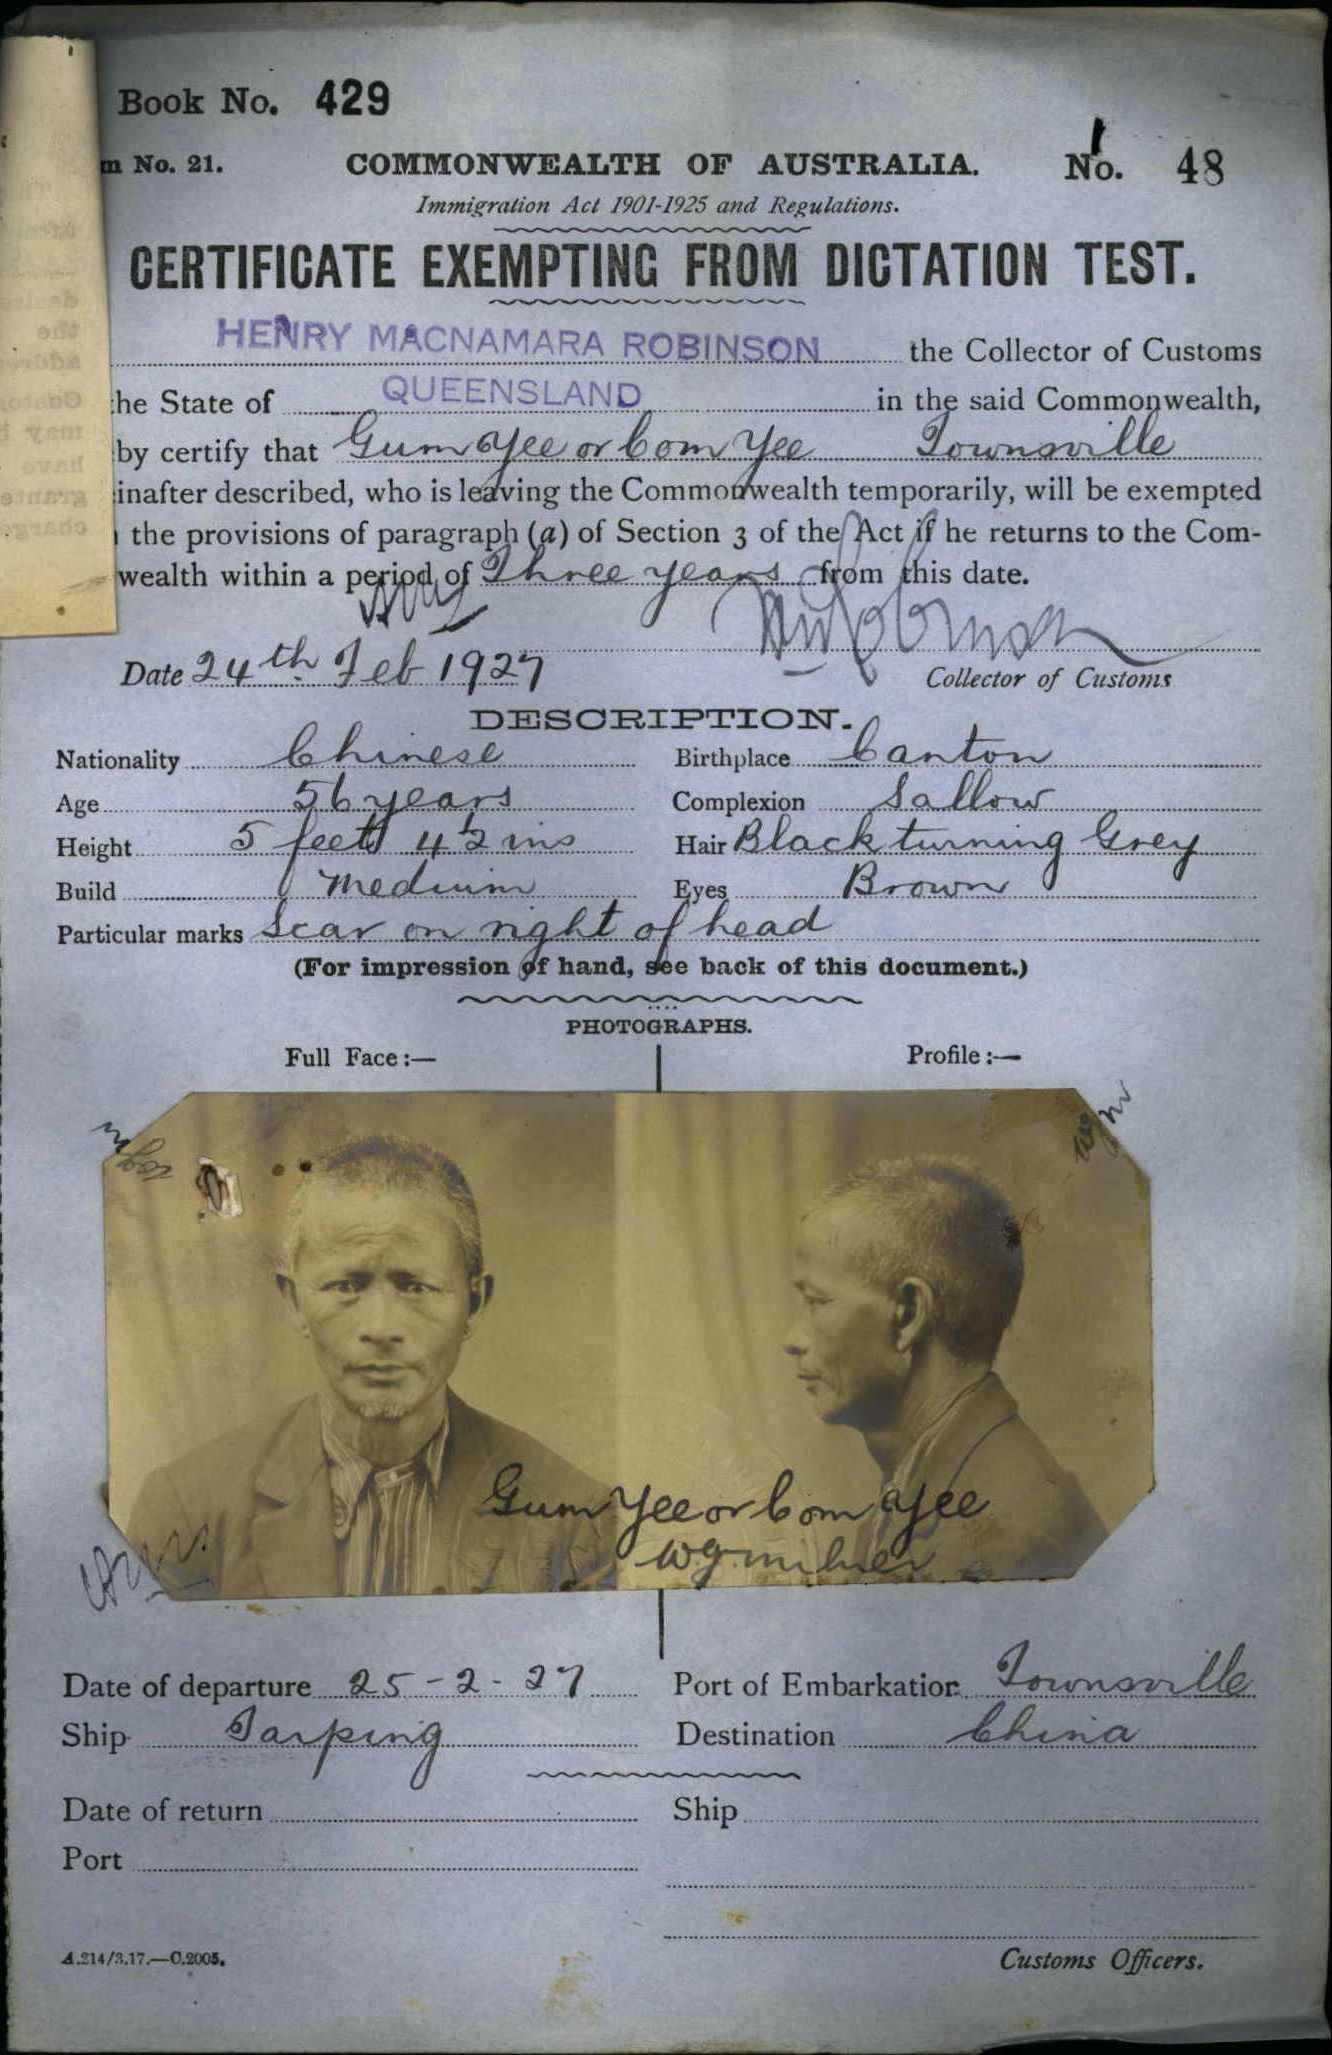 Book No. 429
m No. 21. COMMONWEALTH OF AUSTRALIA. No. 48
Immigration Act 1901-1925 and Regulations.
CERTIFICATE EXEMPTING FROM DICTATION TEST.
HENRY MACNAMARA ROBINSON the Collector of Customs
he State of QUEENSLAND in the said Commonwealth,
by certify that Gum Yee or Com Yee Townsville
inafter described, who is leaving the Commonwealth temporarily, will be exempted
the provisions of paragraph (a) of Section 3 of the Act if he returns to the Com-
wealth within a period of Three years from this date.
Date 24th Feb 1927 Collector of Customs
DESCRIPTION.
Nationality Chinese Birthplace Canton
Age 56 years Complexion Sallow
Height 5 feet 4½ ins Hair Black turning Grey
Build Medium Eyes Brown
Particular marks Scar on right of head
(For impression of hand, see back of this document.)
PHOTOGRAPHS.
Full Face:— Profile:—
Gum Yee or Com Yee
W.J. Milner
Date of departure 25-2-27 Port of Embarkation Townsville
Ship Taiping Destination China
Date of return Ship
Port
A.214/3.17.—C.2005. Customs Officers.